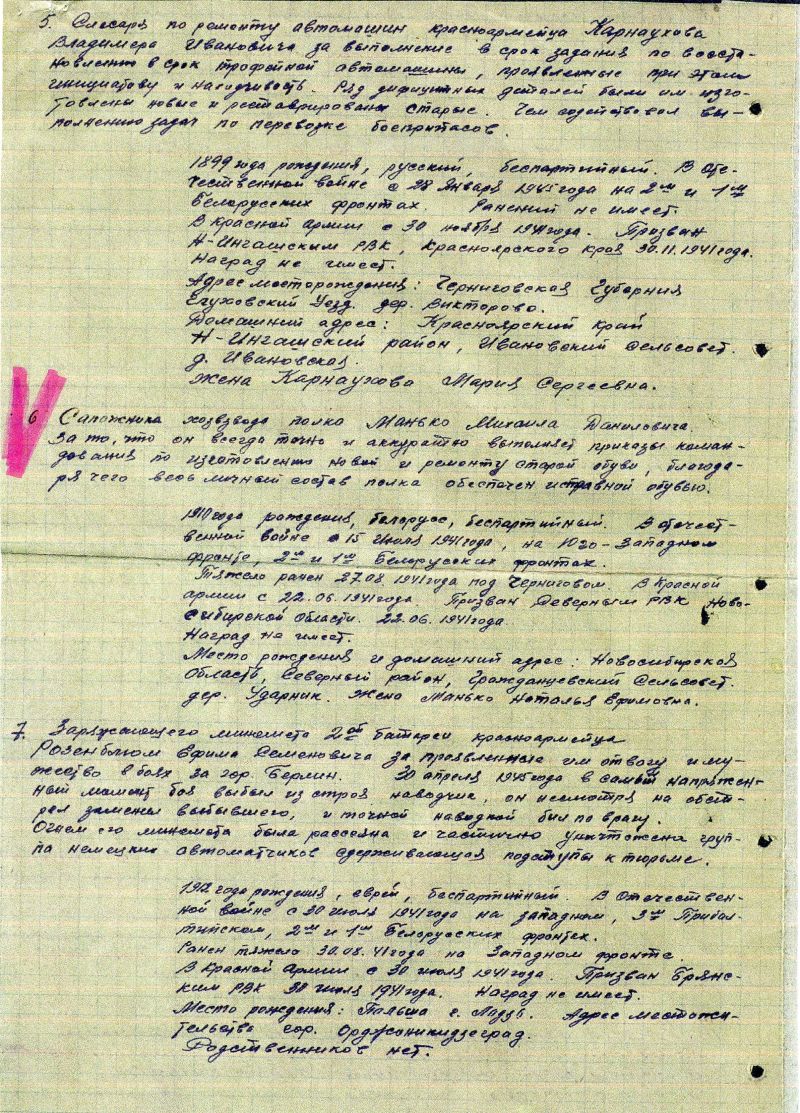 5. Слесаря по ремонту автомашин красноармейца Карнаухова
Владимера Ивановича за выполнение в срок задания по восста-
новлению в срок трофейной автомашины, проявленные при этом
инициативу и находчивость. Ряд дифицитных деталей были им изго-
товлены новые и реставрированы старые. Чем содействовал вы-
полнению задач по перевозке боеприпасов.
1899 года рождения, русский, беспартийный. В Оте-
чественной войне с 28 Января 1945 года на 2ом и 1ом
Белорусских фронтах. Ранений не имеет.
В Красной армии с 30 ноября 1941 года. Призван
Н-Ингашским РВК, Красноярского края 30.11.1941 года.
Наград не имеет.
Адрес месторождения: Черниговская Губерния
Уезд дер. Викторово.
Домашний адрес: Красноярский край
Н-Ингашский район, Ивановский Сельсовет.
д. Ивановская.
Жена Карнаухова Мария Сергеевна.
6 Сапожника хозвзвода полка Манько Михаила Даниловича.
За то, что он всегда точно и аккуратно выполняет приказы коман-
дования по изготовлению новой и ремонту старой обуви, благода-
ря чего весь личный состав полка обеспечен исправной обувью.
1910 года рождения, белорусс, беспартийный. В отечест-
венной войне с 15 Июля 1941 года, на Юго-Западном
фронте, 2ом и 1ом Белорусских фронтах.
Тяжело ранен 27.08.1941 года под Черниговом. В Красной
армии с 22.06.1941 года. Призван Северным РВК Ново-
сибирской Области. 22.06.1941 года.
Наград не имеет.
Место рождения и домашний адрес: Новосибирская
Область, Северный район, Гражданцевский Сельсовет.
дер. Ударник. Жена Манько Наталья Ефимовна.
7. Заряжающего миномета 2ой батареи красноармейца
Розенблюм Ефима Семеновича за проявленные им отвагу и му-
жество в боях за гор. Берлин. 30 апреля 1945 года в самый напряжен-
ный момент боя выбыл из строя наводчик, он несмотря на обст-
рел заменил выбывшего, и точной наводкой бил по врагу.
Огнем его миномета была рассеяна и частично уничтожена груп-
па немецких автоматчиков сдерживающая подступы к тюрьме.
1912 года рождения, еврей, беспартийный. В Отечествен-
ной войне с 30 июля 1941 года на западном, 3ем Прибал-
тийском, 2ом и 1ом Белорусских фронтах.
Ранен тяжело 30.08.41 года на Западном фронте.
В Красной Армии с 30 июля 1941 года. Призван Брянс-
ким РВК июля 1941 года. Наград не имеет.
Место рождения: Польша г. Лодзь. Адрес местожи-
тельства гор. Орджоникидзеград.
Родственников нет.